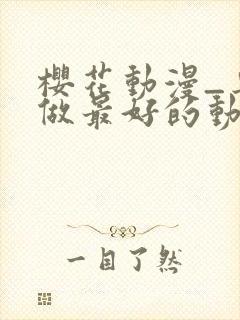 櫻花動漫_
做最好的動
一目了然